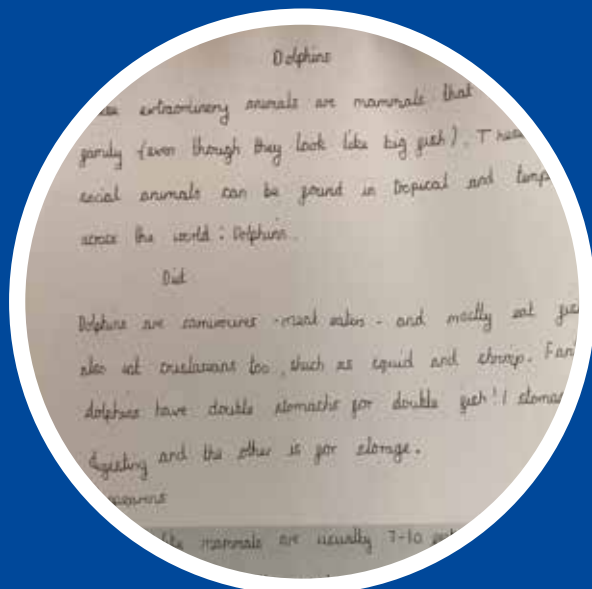 Dolphins
extraordinary animals are mammals that
family (even though they look like big fish). These
social animals can be found in tropical and temp
across the world: Dolphins.
Diet
Dolphins are carnivores - meat eaters - and mostly eat
also eat crustaceans too, such as squid and shrimp.
dolphins have double stomachs for double fish! 1 stomac
digesting and the other is for storage.
mammals are usually 7-10